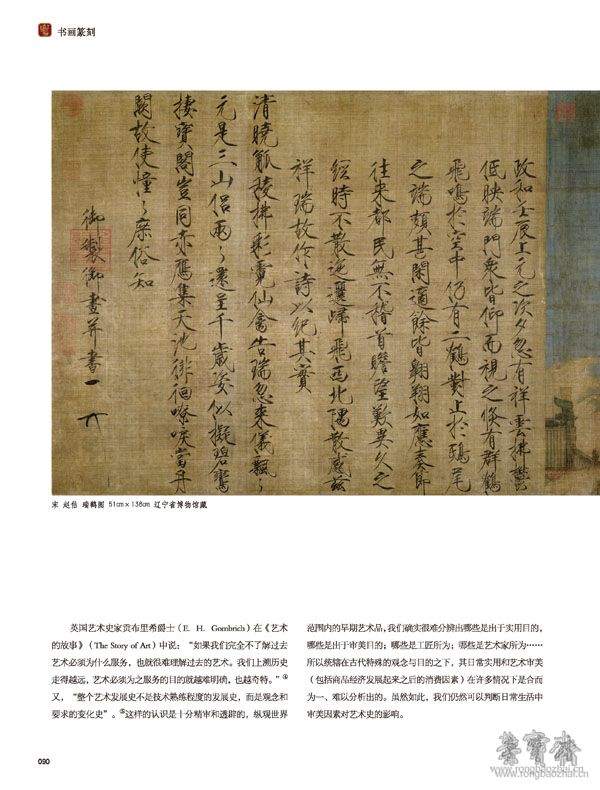 书画篆刻
政和壬辰上元之次夕忽有祥雲拂鬱
低映端門衆皆仰而視之倏有群鶴
飛鳴於空中仍有二鶴對止於鴟尾
之端頗甚閑適餘皆翱翔如應奏節
往来都民無不稽首瞻望歎異久之
經時不散迤邐歸飛西北隅散感茲
祥瑞故作詩以紀其實
清曉觚稜拂彩霓仙禽告瑞忽来儀飄〻
元是三山侶兩〻還呈千歲姿似擬碧鸞
棲寶閣豈同赤鴈集天池徘徊嘹唳當丹
闕故使憧〻庶俗知
御製御畫并書
宋 赵佶 瑞鹤图 51cm×138cm 辽宁省博物馆藏
英国艺术史家贡布里希爵士（E. H. Gombrich）在《艺术
的故事》（The Story of Art）中说：“如果我们完全不了解过去
艺术必须为什么服务，也就很难理解过去的艺术。我们上溯历史
走得越远，艺术必须为之服务的目的就越难明确，也越奇特。”④
又，“整个艺术发展史不是技术熟练程度的发展史，而是观念和
要求的变化史”。⑤这样的认识是十分精审和透辟的，纵观世界
范围内的早期艺术品，我们确实很难分辨出哪些是出于实用目的，
哪些是出于审美目的；哪些是工匠所为；哪些是艺术家所为……
所以统辖在古代特殊的观念与目的之下，其日常实用和艺术审美
（包括商品经济发展起来之后的消费因素）在许多情况下是合而
为一、难以分析出的。虽然如此，我们仍然可以判断日常生活中
审美因素对艺术史的影响。
090
荣宝斋
www.rongbaozhai.cn